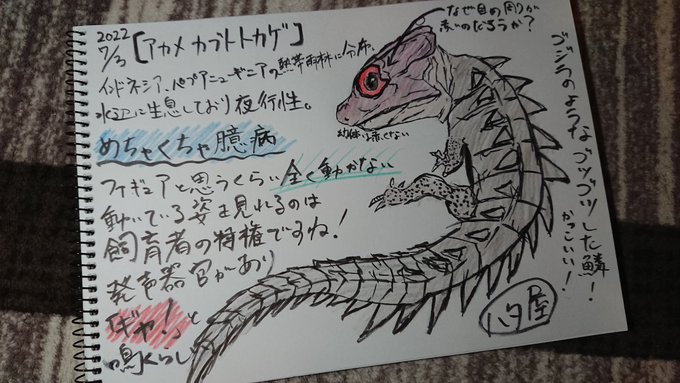 2022
7/3 [アカメカブトトカゲ]
インドネシア、パプアニューギニアの熱帯雨林に分布。
水辺に生息しており夜行性。
めちゃくちゃ臆病
フィギュアと思うくらい全く動かない
動いている姿を見れるのは
飼育者の特権ですね!
発声器官があり
「ギャ!」と
鳴くらしい
なぜ目の周りが
赤いのだろうか?
幼体は赤くない
ゴジラのようなゴツゴツした鱗!
かっこいい!
ハタ屋